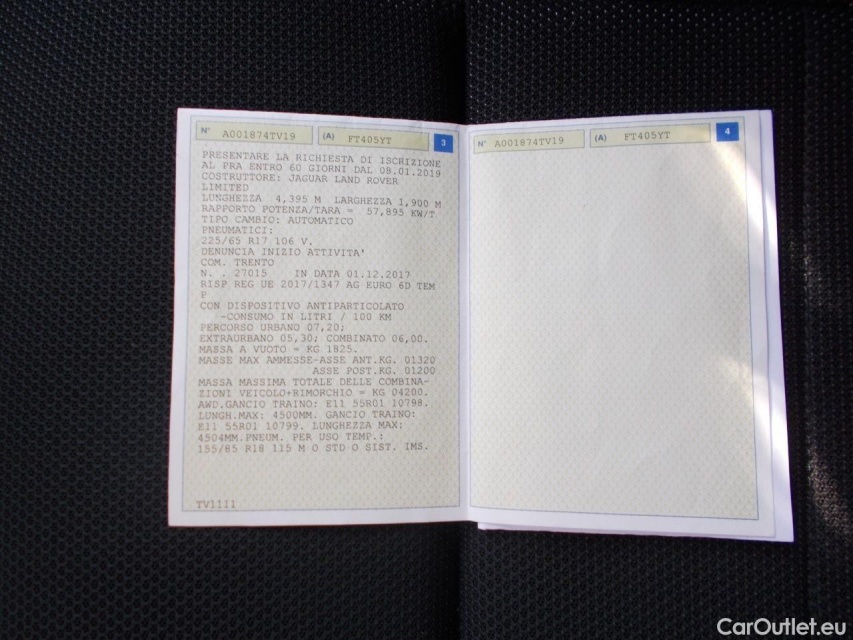 N° A001874TV19 (A) FT405YT 3
PRESENTARE LA RICHIESTA DI ISCRIZIONE
AL PRA ENTRO 60 GIORNI DAL 08.01.2019
COSTRUTTORE: JAGUAR LAND ROVER
LIMITED
LUNGHEZZA 4,395 M LARGHEZZA 1,900 M
RAPPORTO POTENZA/TARA = 57,895 KW/T
TIPO CAMBIO: AUTOMATICO
PNEUMATICI:
225/65 R17 106 V.
DENUNCIA INIZIO ATTIVITA'
COM. TRENTO
N. . 27015 IN DATA 01.12.2017
RISP REG UE 2017/1347 AG EURO 6D TEM
P
CON DISPOSITIVO ANTIPARTICOLATO
-CONSUMO IN LITRI / 100 KM
PERCORSO URBANO 07,20;
EXTRAURBANO 05,30; COMBINATO 06,00.
MASSA A VUOTO = KG 1825.
MASSE MAX AMMESSE-ASSE ANT.KG. 01320
ASSE POST.KG. 01200
MASSA MASSIMA TOTALE DELLE COMBINA-
ZIONI VEICOLO+RIMORCHIO = KG 04200.
AWD.GANCIO TRAINO: E11 55R01 10798.
LUNGH.MAX: 4500MM. GANCIO TRAINO:
E11 55R01 10799. LUNGHEZZA MAX:
4504MM.PNEUM. PER USO TEMP.:
155/85 R18 115 M O STD O SIST. IMS.
TV1111
N° A001874TV19 (A) FT405YT 4
CarOutlet.eu